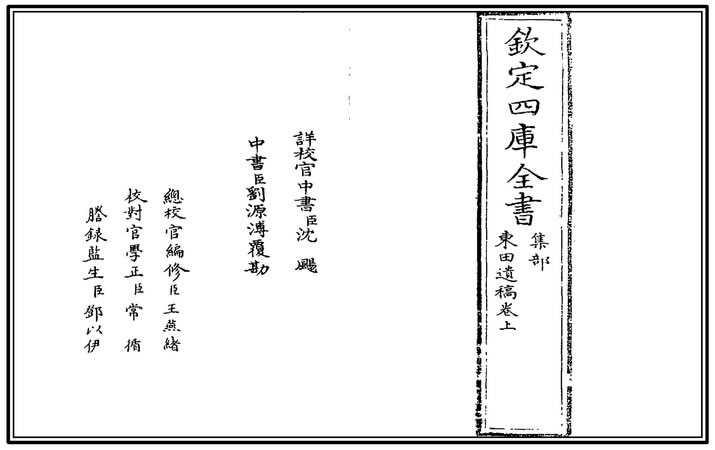 欽定四庫全書
集部
東田遺稿卷上
詳校官中書臣沈颺
中書臣劉源溥覆勘
總校官編修臣王燕緒
校對官學正臣常循
謄録監生臣鄧以伊